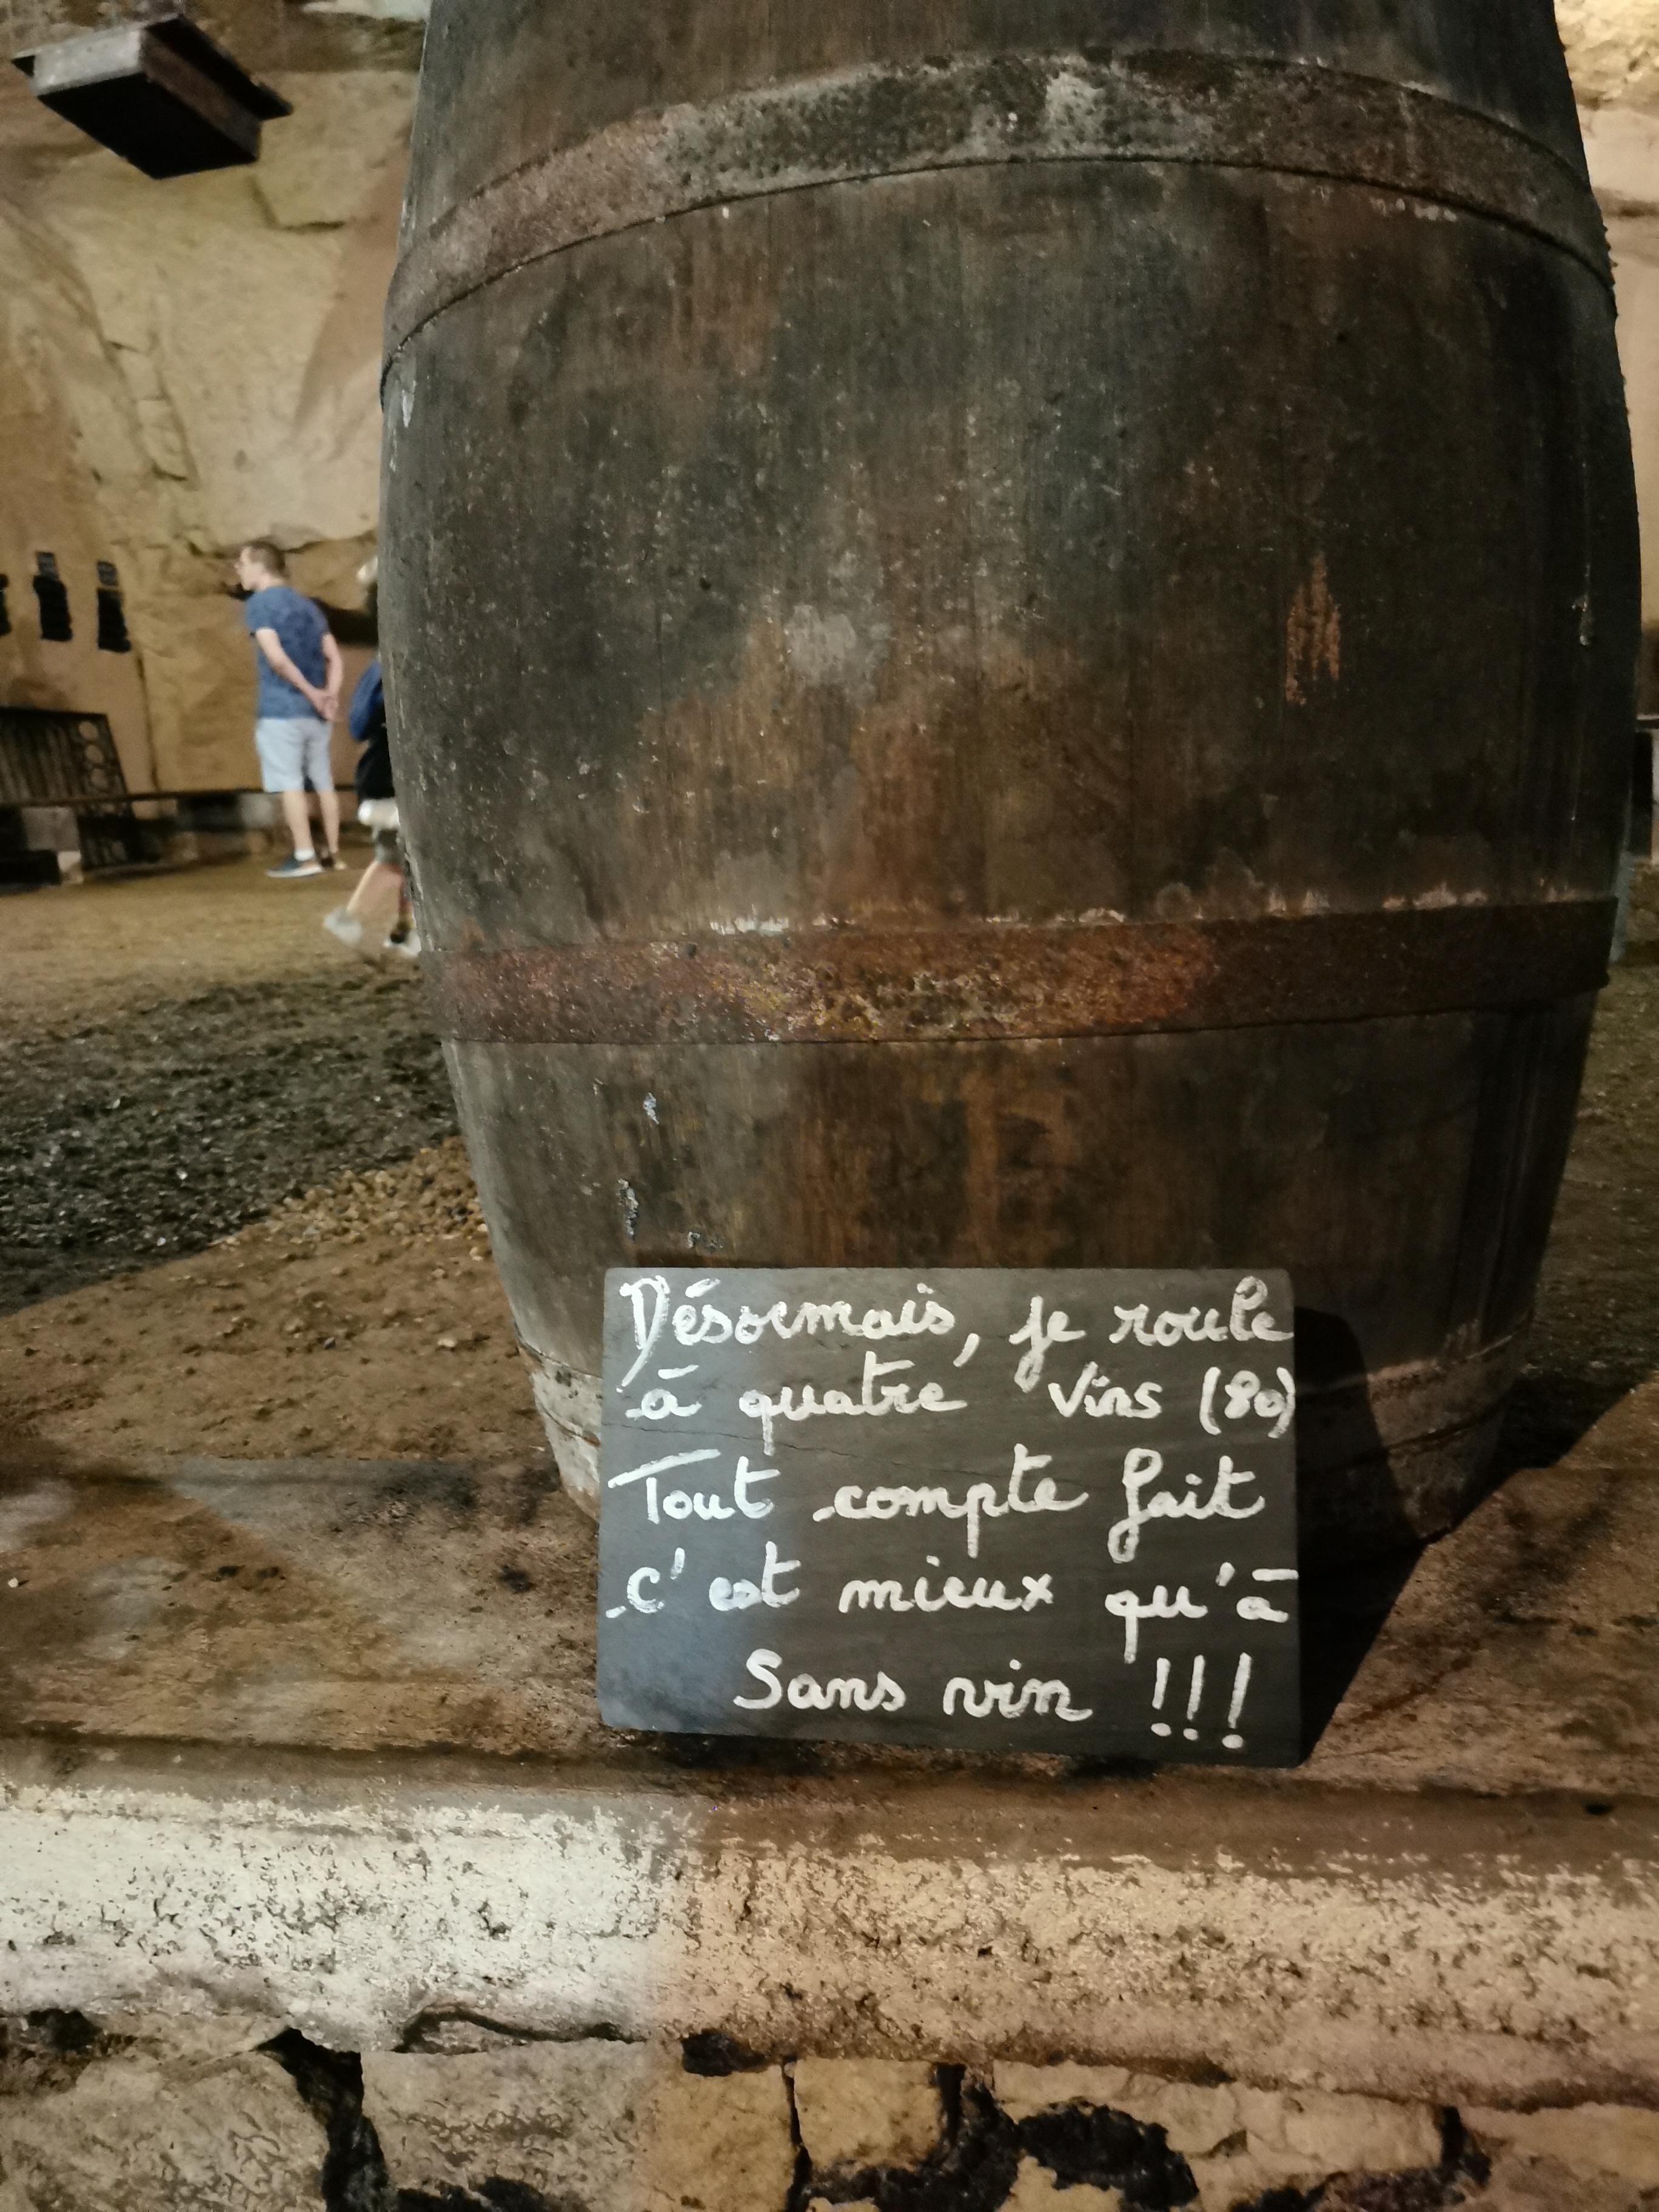 Désormais, je roule
à quatre Vins (80)
Tout compte fait
c'est mieux qu'à
Sans vin !!!